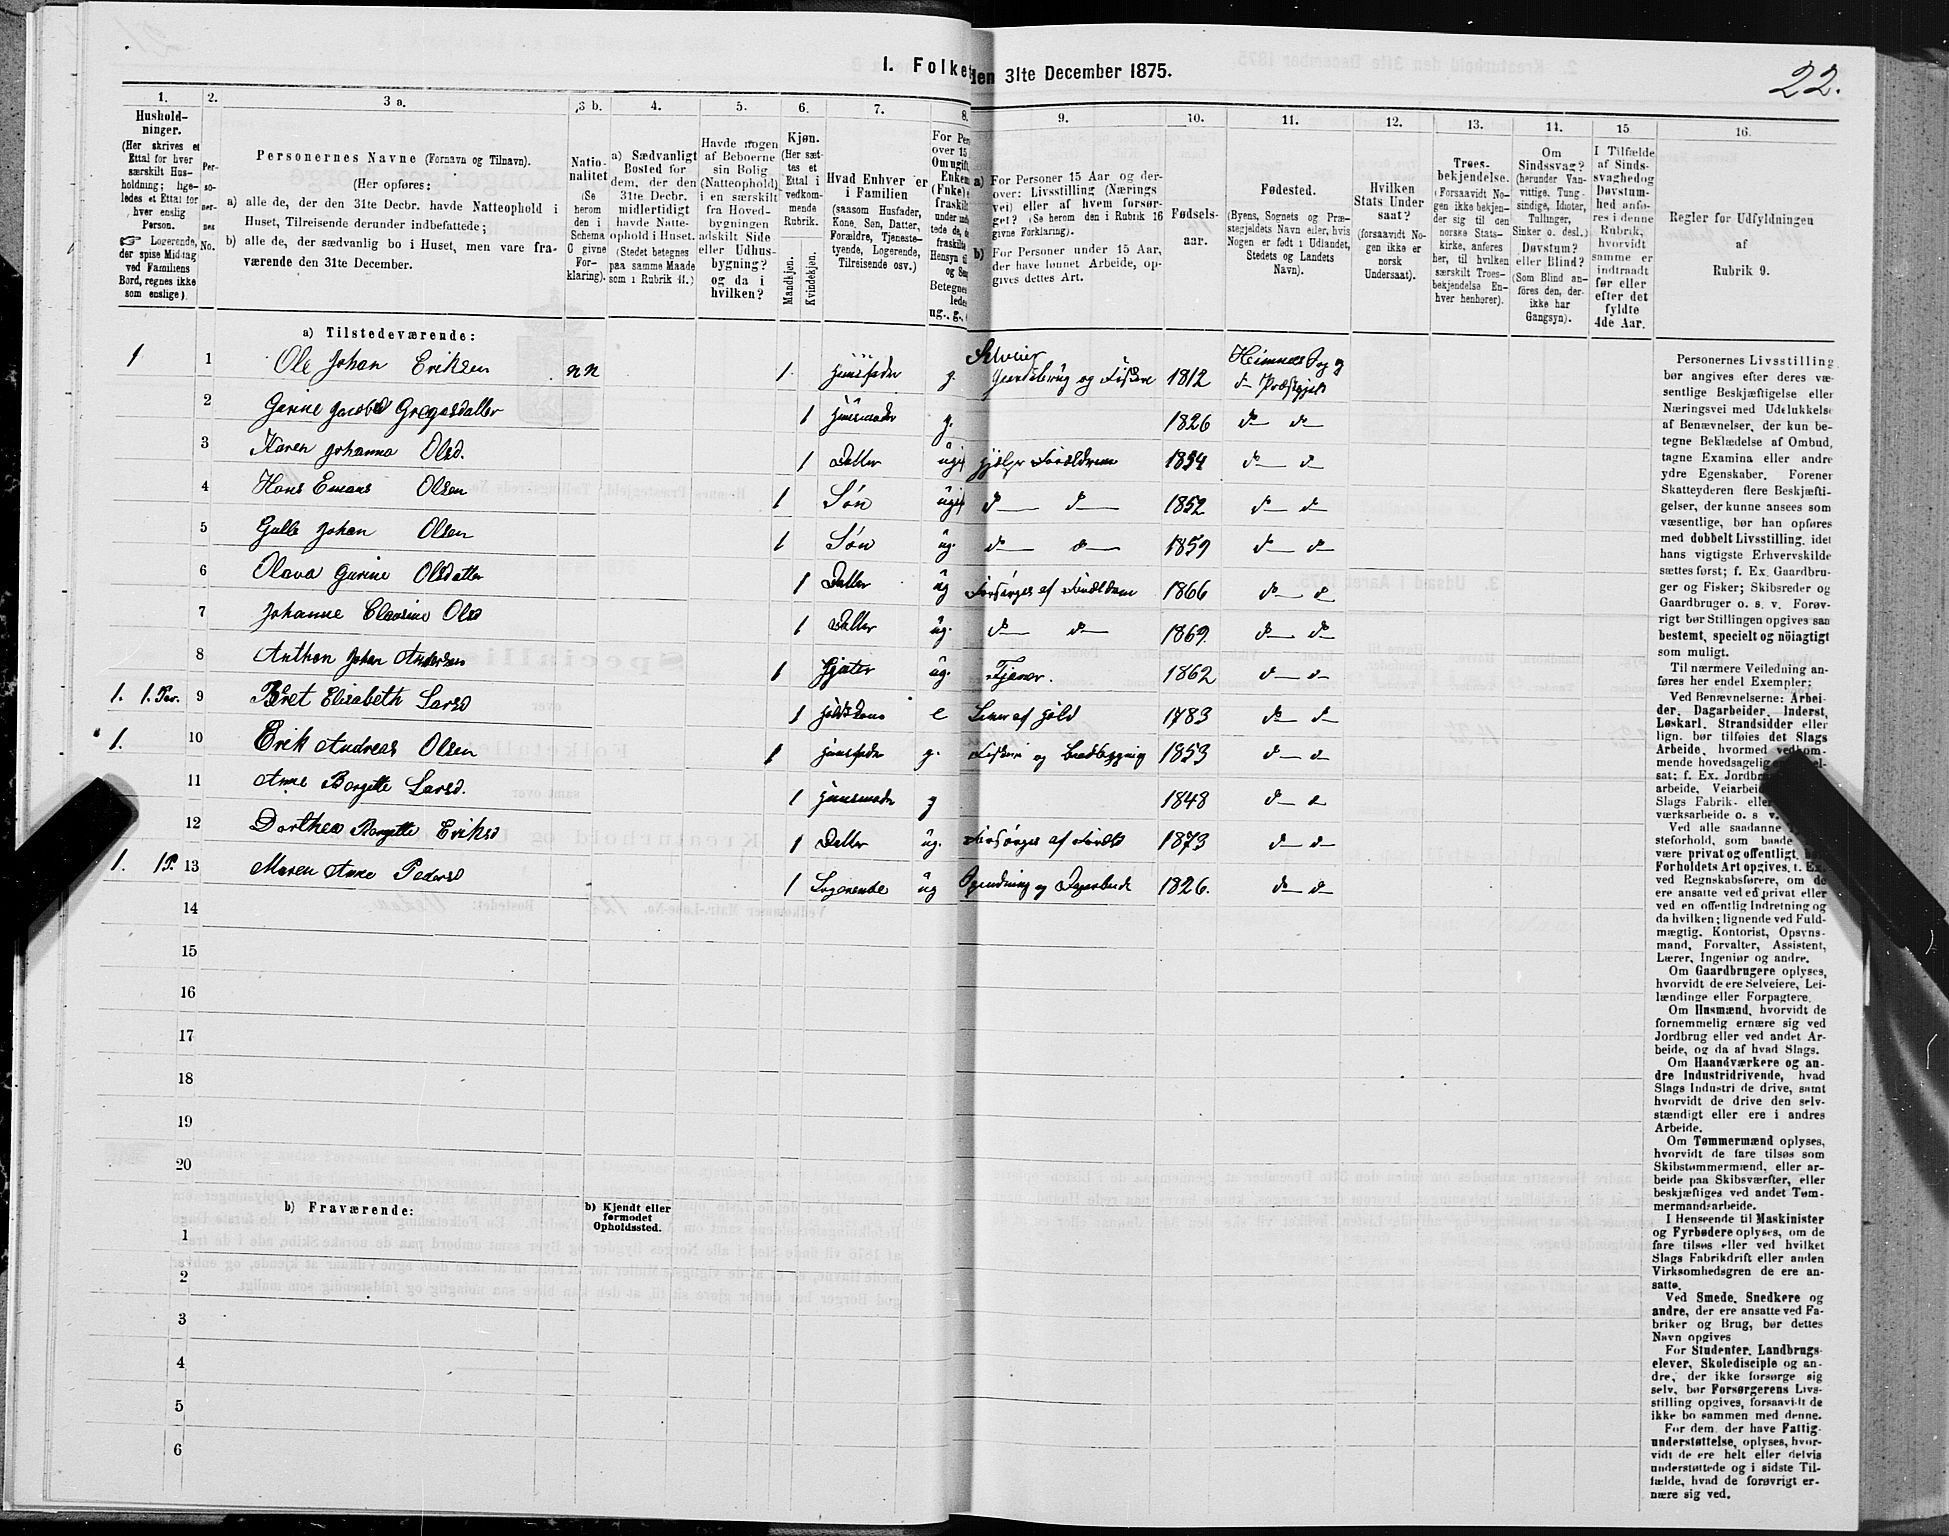 22.
1. Folke den 31te December 1875.
1. 2. 3 a. 3 b. 4. 5. 6. 7. 8. 9. 10. 11. 12. 13. 14. 15 16.
Hushold-
ninger.
(Her skrives et
Ettal for hver
særskilt Hus-
holdning; lige-
ledes et Ettal for
hver enslig
Person.
☞ Logerende,
der spise Middag
ved Familiens
Bord, regnes ikke
som enslige).
Per-
so-
ner-
nes
No.
Personernes Navne (Fornavn og Tilnavn).
(Her opføres:
a) alle de, der den 31te Decbr. havde Natteophold i
Huset, Tilreisende derunder indbefattede;
b) alle de, der sædvanlig bo i Huset, men vare fra-
værende den 31te December.
Natio-
nalitet
(Se
herom
den i
Schema
C givne
For-
klaring).
a) Sædvanligt
Bosted for
dem, der den
31te Decbr.
midlertidigt
havde Natte-
ophold i Huset.
(Stedet betegnes
paa samme Maade
som i Rubrik 11.)
Havde nogen
af Beboerne
sin Bolig
(Natteophold)
i en særskilt
fra Hoved-
bygningen
adskilt Side
eller Udhus-
bygning?
og da i
hvilken?
Kjøn.
(Her sæt-
tes et
Ettal i
vedkom-
mende
Rubrik.
Mandkjøn.
Kvindekjøn.
Hvad Enhver er
i Familien
(saasom Husfader,
Kone, Søn, Datter,
Forældre, Tjeneste-
tyende, Logerende,
Tilreisende osv.)
For Per
over 15
Om ugift
Enkem
(Fnke)
fraskilt
Betegnes
ledes
ug., g.,
a) For Personer 15 Aar og der-
over: Livsstilling (Nærings
vei) eller af hvem forsør-
get? (Se herom den i Rubrik 16
givne Forklaring).
b) For Personer under 15 Aar,
der have lønnet Arbeide, op-
gives dettes Art.
Fødsels-
aar.
Fødested.
(Byens, Sognets og Præ-
stegjeldets Navn eller, hvis
Nogen er født i Udlandet,
Stedets og Landets
Navn).
Hvilken
Stats Under
saat?
(forsaavidt No-
gen ikke er
norsk
Undersaat).
Troes-
bekjendelse.
(Forsaavidt No-
gen ikke bekjen-
der sig til den
norske Stats-
kirke, anføres
her, til hvilken
særskilt Troes-
bekjendelse En-
hver henhører).
Om
Sindssvag?
(herunder Van-
vittige, Tung-
sindige, Idioter,
Tullinger,
Sinker o. desl.)
Døvstum?
eller Blind?
(Som Blind an-
føres den, der-
ikke har
Gangsyn).
I Tilfælde
af Sinds-
svaghed og
Døvstum-
hed anfø-
res i denne
Rubrik,
hvorvidt
samme er
indtraadt
før eller
efter det
fyldte
4de Aar.
Regler for Udfyldningen
af
Rubrik 9.
a) Tilstedeværende:
1 1 Ole Johan Eriksen nn 1 Huusfader g. Selveier Gaardsbrug og Fisker 1812 Heimnes Sog og d Præstgjeld
2 Gurine Jacobd Gregusdatter 1 Huusmoder g. 1826 d d
3 Karen Johanna Olsd. 1 Datter ugif Hjelper Forældrene 1854 d d
4 Hans Emans Olsen 1 Søn ugif d d 1852 d d
5 Johan Olsen 1 Søn ug. d d 1859 d d
6 Olava Gurine Olsdatter 1 Datter ug Forsørges af Forældrene 1866 d d
7 Johanne Olsd 1 Datter ug. d d 1869. d d
8 Anthon Johan Andersen 1 Gjæter ug. Tjener. 1862 d d
1. 1. Par. 9 Beret Elisabeth Larsd 1 e Lever af Hold 1783 d d
1. 10 Erik Andreas Olsen 1 Huusfader g. Fiskeri og 1853 d d
11 Anne Bergette Larsd. 1 Huusmoder g 1848 d d
12 Dorthea Bergette Eriksd 1 Datter ug. Forsørges af Foreld 1873 d d
1. 1P. 13 Maren Anne Pedersd 1 Logerende ug Spinding og 1826. d d
14
15
16
17
18
19
20
b) Fraværende:
b) Kjendt eller
formodet
Opholdssted.
1
2
3
4
5
6
Personernes Livsstilling
bør angives efter deres væ-
sentlige Beskjæftigelse eller
Næringsvei med Udelukkelse
af Benævnelser, der kun be-
tegne Beklædelse af Ombud,
tagne Examina eller andre
ydre Egenskaber. Forener
Skatteyderen flere Beskjæfti-
gelser, der kunne ansees som
væsentlige, bør han opføres
med dobbelt Livsstilling, idet
hans vigtigste Erhvervskilde
sættes først; f. Ex. Gaardbru-
ger og Fisker; Skibsreder og
Gaardbruger o. s. v. Forøv-
rigt bør Stillingen opgives saa
bestemt, specielt og nöiagtigt
som muligt.
Til nærmere Veiledning an-
føres her endel Exempler;
Ved Benævnelserne: Arbei-
der, Dagarbeider, Inderst,
Løskarl, Strandsidder eller
lign. bør tilføies det Slags
Arbeide, hvormed vedkom-
mende hovedsagelig
sat; f. Ex. Jordbr
arbeide, Veiarbei
Slags Fabrik- elle
værksarbeide o. s v.
Ved alle saadanne
steforhold, som baade
være privat og offentligt,
Forholdets Art opgives. t. Ex.
ved Regnskabsførere, om de
ere ansatte ved et privat eller
ved en offentlig Indretning og
da hvilken; lignende ved Fuld-
mægtig, Kontorist, Opsyns-
mand, Forvalter, Assistent,
Lærer, Ingeniør og andre.
Om Gaardbrugere oplyses,
hvorvidt de ere Selveiere, Lei-
lændinge eller Forpagtere.
Om Husmænd, hvorvidt de
fornemmelig ernære sig ved
Jordbrug eller ved andet Ar-
beide, og da af hvad Slags.
Om Haandværkere og an-
dre Industridrivende, hvad
Slags Industri de drive, samt
hvorvidt de drive den selv-
stændigt eller ere i andres
Arbeide.
Om Tømmermænd oplyses,
hvorvidt de fare tilsøs som
Skibstømmermænd, eller ar-
beide paa Skibsværfter, eller
beskjæftiges ved andet Tøm-
mermandsarbeide.
I Henseende til Maskinister
og Fyrbødere oplyses, om de
fare tilsøs eller ved hvilket
Slags Fabrikdrift eller anden
Virksomhedsgren de ere an-
satte.
Ved Smede, Snedkere og
andre, der ere ansatte ved Fa-
briker og Brug, bør dettes
Navn opgives
For Studenter, Landbrugs-
elever, Skoledisciple og an-
dre, der ikke forsørge sig
selv, bør Forsørgerens Livs-
stilling opgives, forsaavidt de
ikke bo sammen med denne.
For dem, der have Fattig-
understøttelse, oplyses, hvor-
vidt de ere helt eller delvis
understøttede og i sidste Til-
fælde, hvad de forøvrigt er-
nære sig ved.